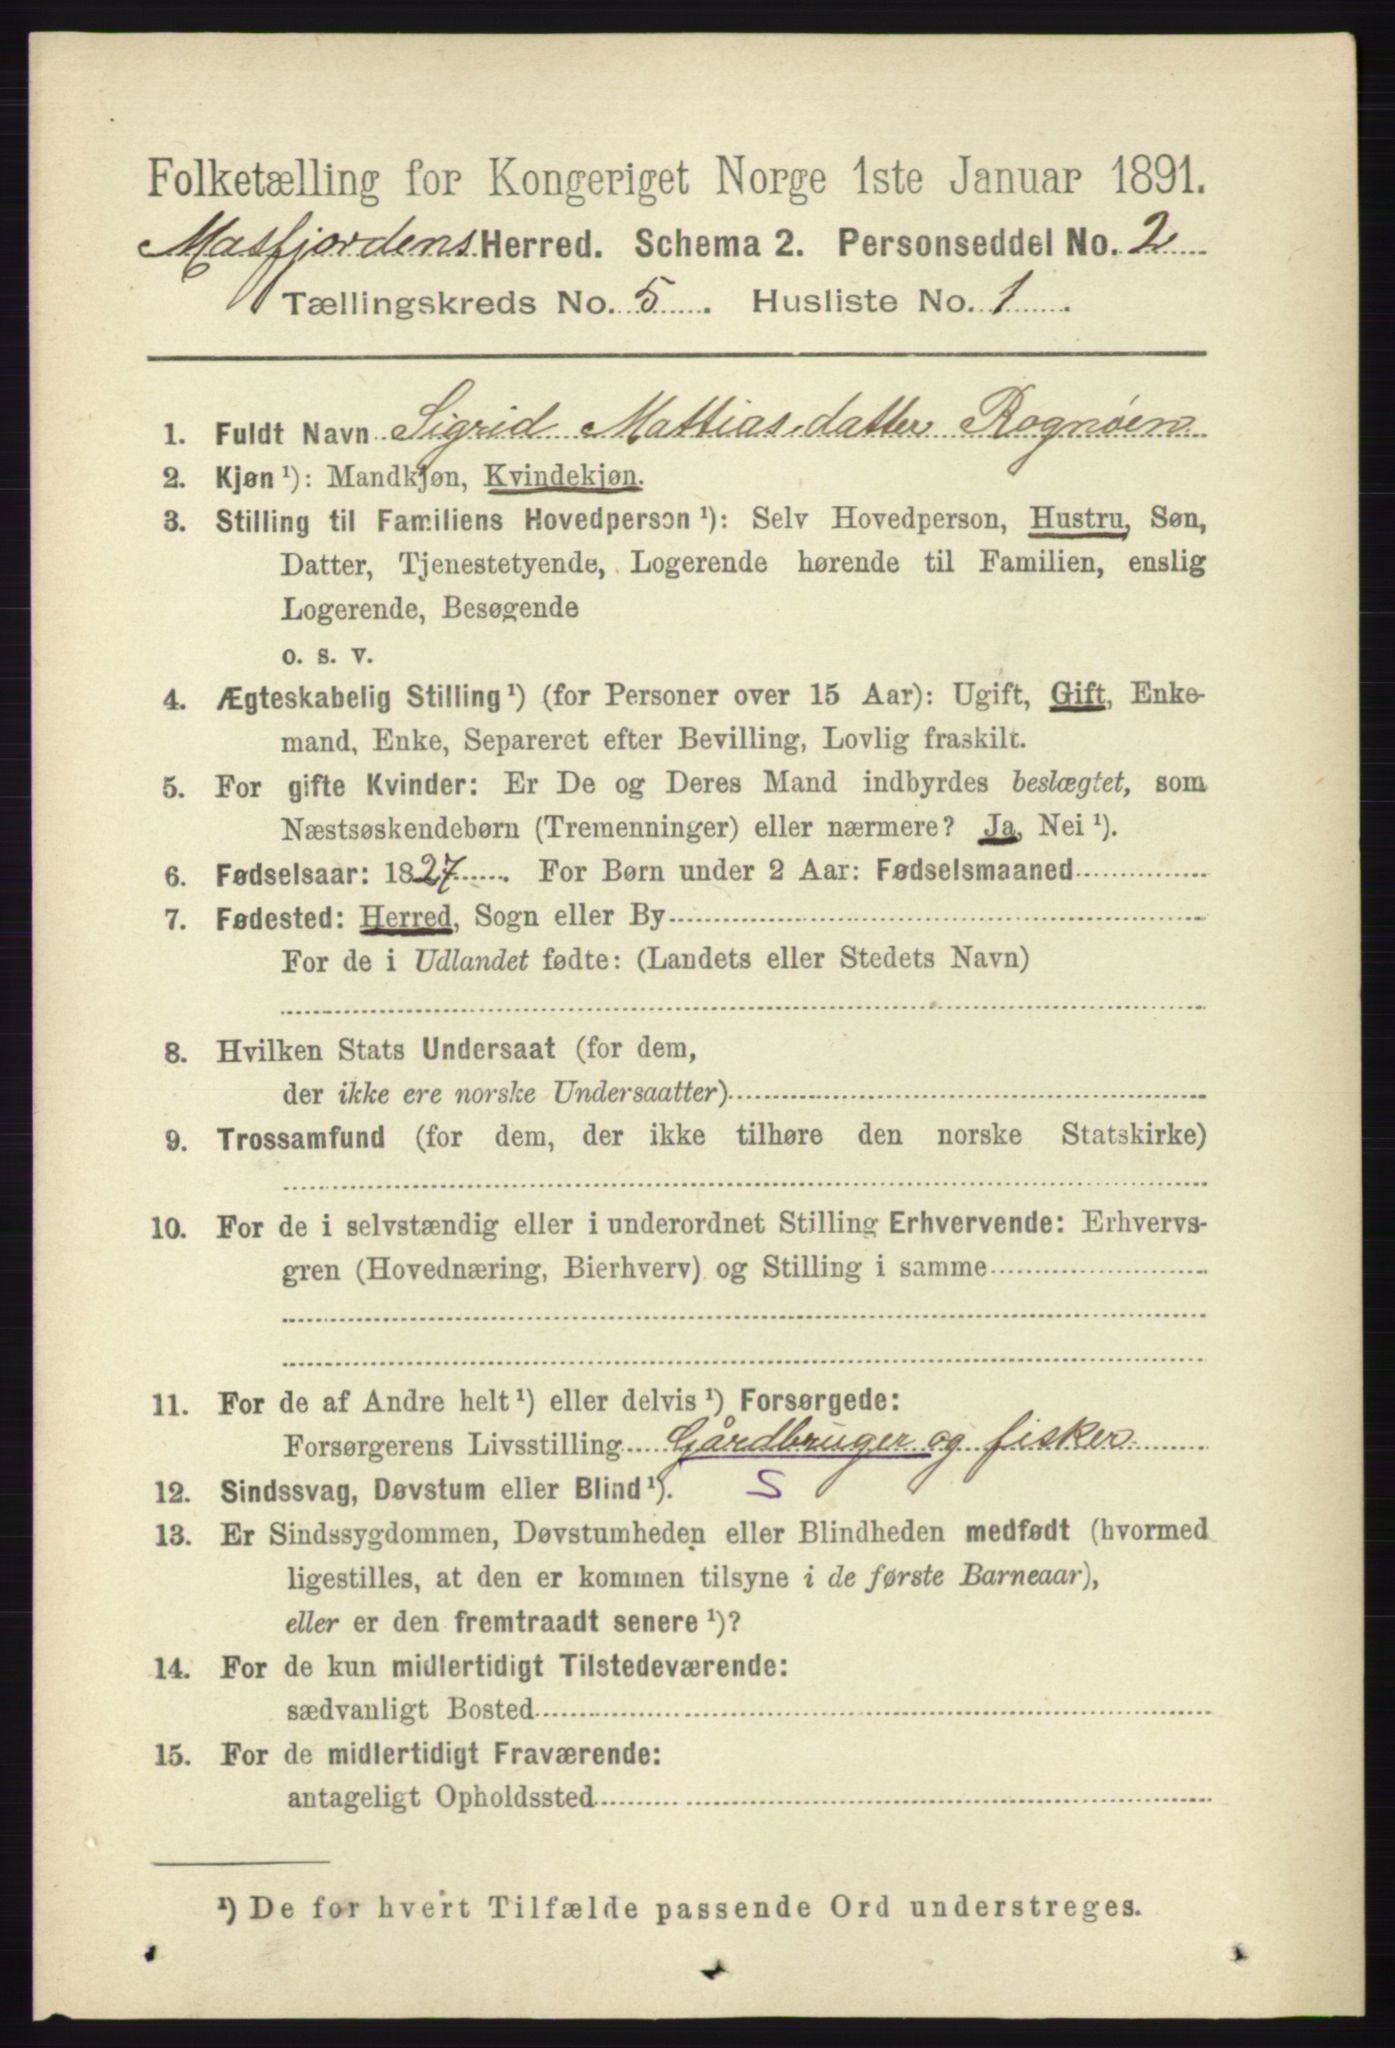 Folketælling for Kongeriget Norge 1ste Januar 1891.
Masfjordens Herred. Schema 2. Personseddel No. 2
Tællingskreds No. 5. Husliste No. 1.
1. Fuldt Navn Sigrid Mattiasdatter Rognøen
2. Kjøn ¹): Mandkjøn, Kvindekjøn.
3. Stilling til Familiens Hovedperson ¹): Selv Hovedperson, Hustru, Søn,
Datter, Tjenestetyende, Logerende hørende til Familien, enslig
Logerende, Besøgende
o. s. v.
4. Ægteskabelig Stilling ¹) (for Personer over 15 Aar): Ugift, Gift, Enke-
mand, Enke, Separeret efter Bevilling, Lovlig fraskilt.
5. For gifte Kvinder: Er De og Deres Mand indbyrdes beslægtet, som
Næstsøskendebørn (Tremenninger) eller nærmere? Ja, Nei ¹).
6. Fødselsaar: 1827. For Børn under 2 Aar: Fødselsmaaned
7. Fødested: Herred, Sogn eller By
For de i Udlandet fødte: (Landets eller Stedets Navn)
8. Hvilken Stats Undersaat (for dem,
der ikke ere norske Undersaatter)
9. Trossamfund (for dem, der ikke tilhøre den norske Statskirke)
10. For de i selvstændig eller i underordnet Stilling Erhvervende: Erhvervs-
gren (Hovednæring, Bierhverv) og Stilling i samme
11. For de af Andre helt ¹) eller delvis ¹) Forsørgede:
Forsørgerens Livsstilling Gårdbruger og fisker
12. Sindssvag, Døvstum eller Blind ¹). S
13. Er Sindssygdommen, Døvstumheden eller Blindheden medfødt (hvormed
ligestilles, at den er kommen tilsyne i de første Barneaar),
eller er den fremtraadt senere ¹)?
14. For de kun midlertidigt Tilstedeværende:
sædvanligt Bosted
15. For de midlertidigt Fraværende:
antageligt Opholdssted
¹) De for hvert Tilfælde passende Ord understreges.